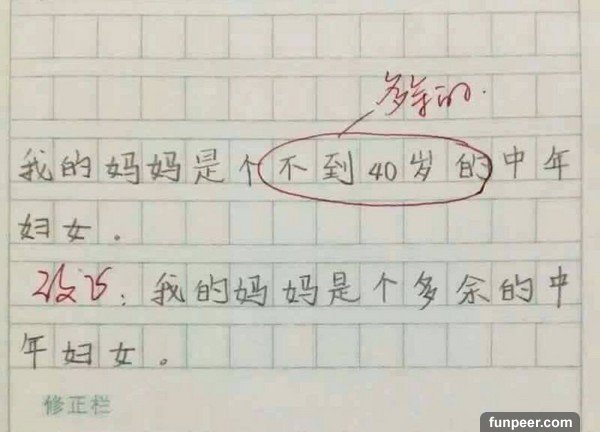 多余的.
我的妈妈是个不到40岁的中年
妇女。
改正：我的妈妈是个多余的中
年妇女。
修正栏
funpeer.com